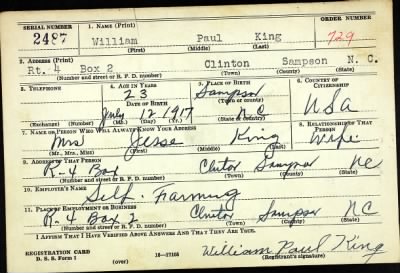 SERIAL NUMBER 1. NAME (Print) ORDER NUMBER
2487 William Paul King 729
(First) (Middle) (Last)
2. ADDRESS (Print)
Rt. 4 Box 2 Clinton Sampson N. C.
(Number and street or R. F. D. number) (Town) (County) (State)
3. TELEPHONE 4. AGE IN YEARS 5. PLACE OF BIRTH 6. COUNTRY OF CITIZENSHIP
23 Sampson
DATE OF BIRTH (Town or county)
July 12 1917 N C USA
(Exchange) (Number) (Mo.) (Day) (Yr.) (State or country)
7. NAME OF PERSON WHO WILL ALWAYS KNOW YOUR ADDRESS 8. RELATIONSHIP OF THAT PERSON
Mrs Jesse King Wife
(Mr., Mrs., Miss) (First) (Middle) (Last)
9. ADDRESS OF THAT PERSON
R-4 Box Clinton Sampson NC
(Number and street or R. F. D. number) (Town) (County) (State)
10. EMPLOYER'S NAME
Self. Farming
11. PLACE OF EMPLOYMENT OR BUSINESS
R-4 Box 2 Clinton Sampson NC
(Number and street or R. F. D. number) (Town) (County) (State)
I AFFIRM THAT I HAVE VERIFIED ABOVE ANSWERS AND THAT THEY ARE TRUE.
William Paul King
REGISTRATION CARD
D. S. S. Form 1 (over) 16—17105 (Registrant's signature)